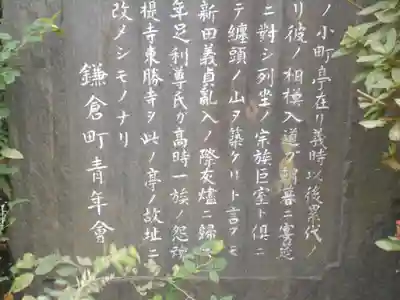 ノ小町亭在リ義時以後累代ノ
リ彼ノ相模入道ガ朝暮ニ宴筵
ニ對シ列坐ノ宗族巨室ト倶ニ
テ纏頭ノ山ヲ築ケリト言フモ
新田義貞亂入ノ際灰燼ニ歸
年足利尊氏ガ高時一族ノ怨魂
提寺東勝寺ヲ此ノ亭ノ故址ニ
改メシモノナリ
鎌倉町青年會